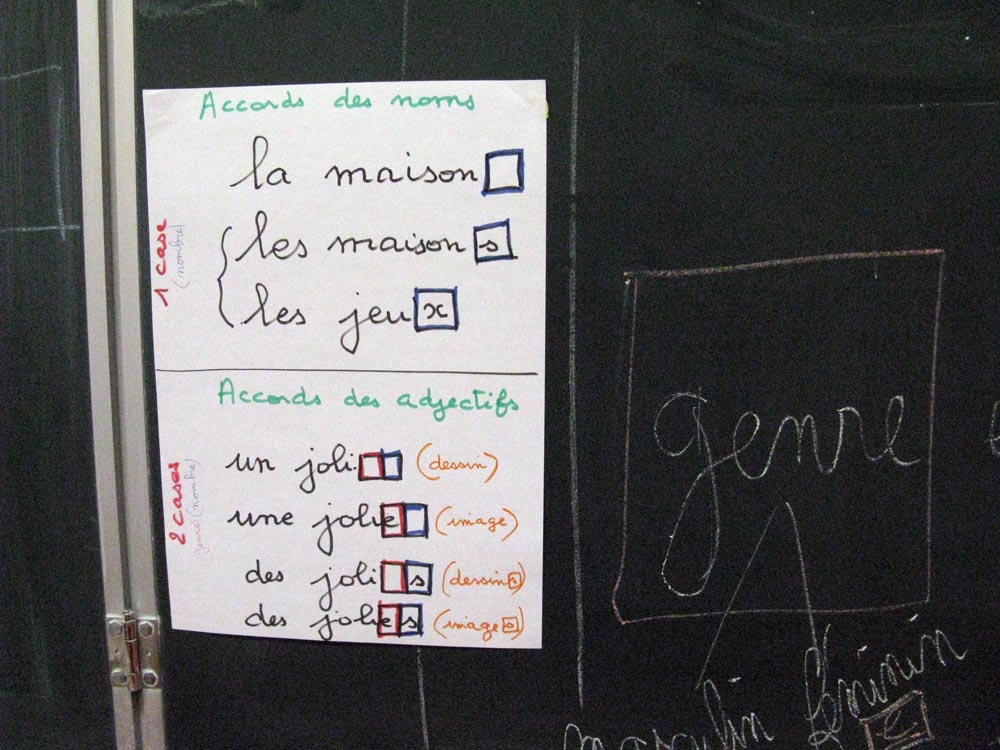 Accords des noms
la maison
les maisons
les jeux
1 case
(nombre)
Accords des adjectifs
un joli (dessin)
une jolie (image)
des jolis (dessins)
des jolies (images)
2 cases
genre/nombre/
genre
masculin féminin
e